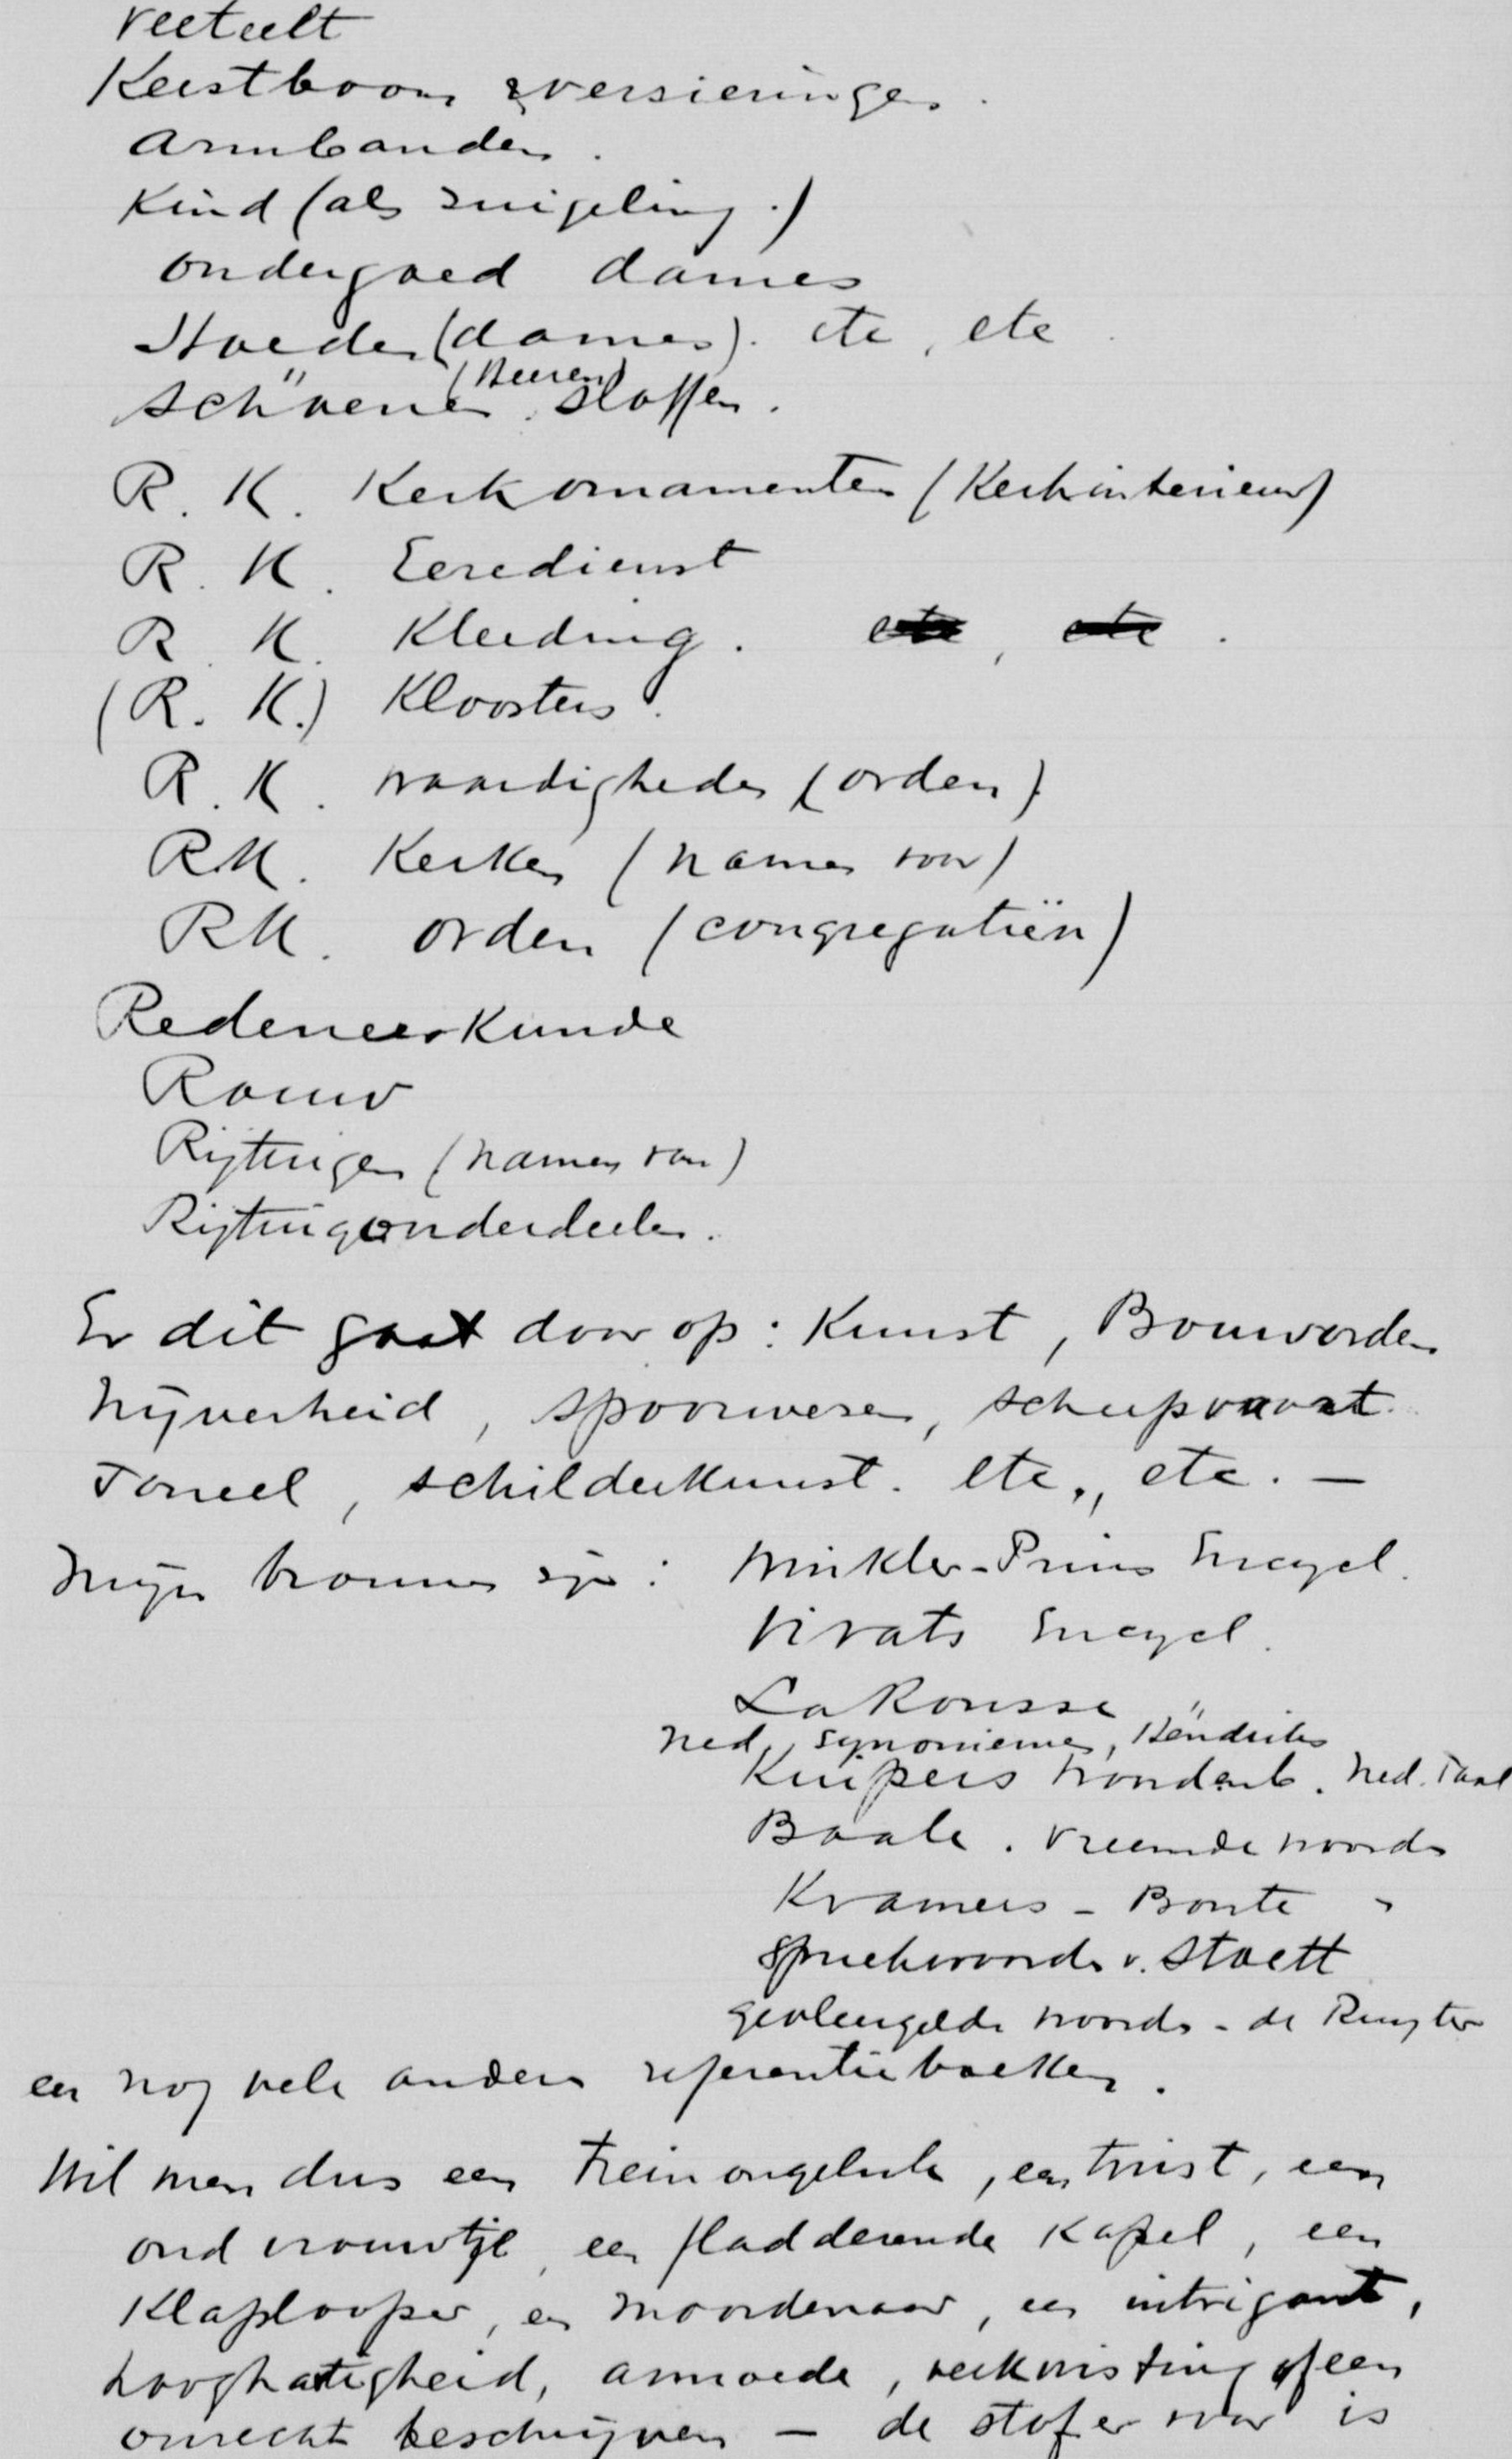 Veeteelt
Kerstboom versieringen.
Armbanden.
Kind (als zuigeling.)
Ondergoed dames
Hoeden (dames). etc, etc.
(Heeren)
Schoenen. Sloffen.
R. K. Kerkornamenten (Kerkinterieur)
R. K. Eeredienst
R. K. Kleeding. etc, etc.
(R. K.) Kloosters.
R. K. waardigheden (orden)
R.K. Kerken (namen van)
R.K. orden (congregatiën)
Redeneerkunde
Rouw
Rijtuigen (namen van)
Rijtuigonderdeelen.
En dit gaat door op: Kunst, Bouworden
Nijverheid, spoorwezen, scheepvaart.
Toneel, schilderkunst. etc., etc. —
Mijn bronnen zijn: Winkler-Prins Encycl.
Vivats Encycl.
La Rousse
Ned. synoniemen, Hendriks
Kuipers woordenb. Ned. Taal
Baale. Vreemde woorden
Kramers - Bonte "
Spreekwoorden v. Stoett
Gevleugelde woorden - de Ruyter
en nog vele andere referentieboeken.
Wil men dus een treinongeluk, een twist, een
oud vrouwtje, een fladderende kapel, een
Klaplooper, en moordenaar, een intrigant,
hooghartigheid, armoede, verkwisting of een
onrecht beschrijven — de stof er voor is